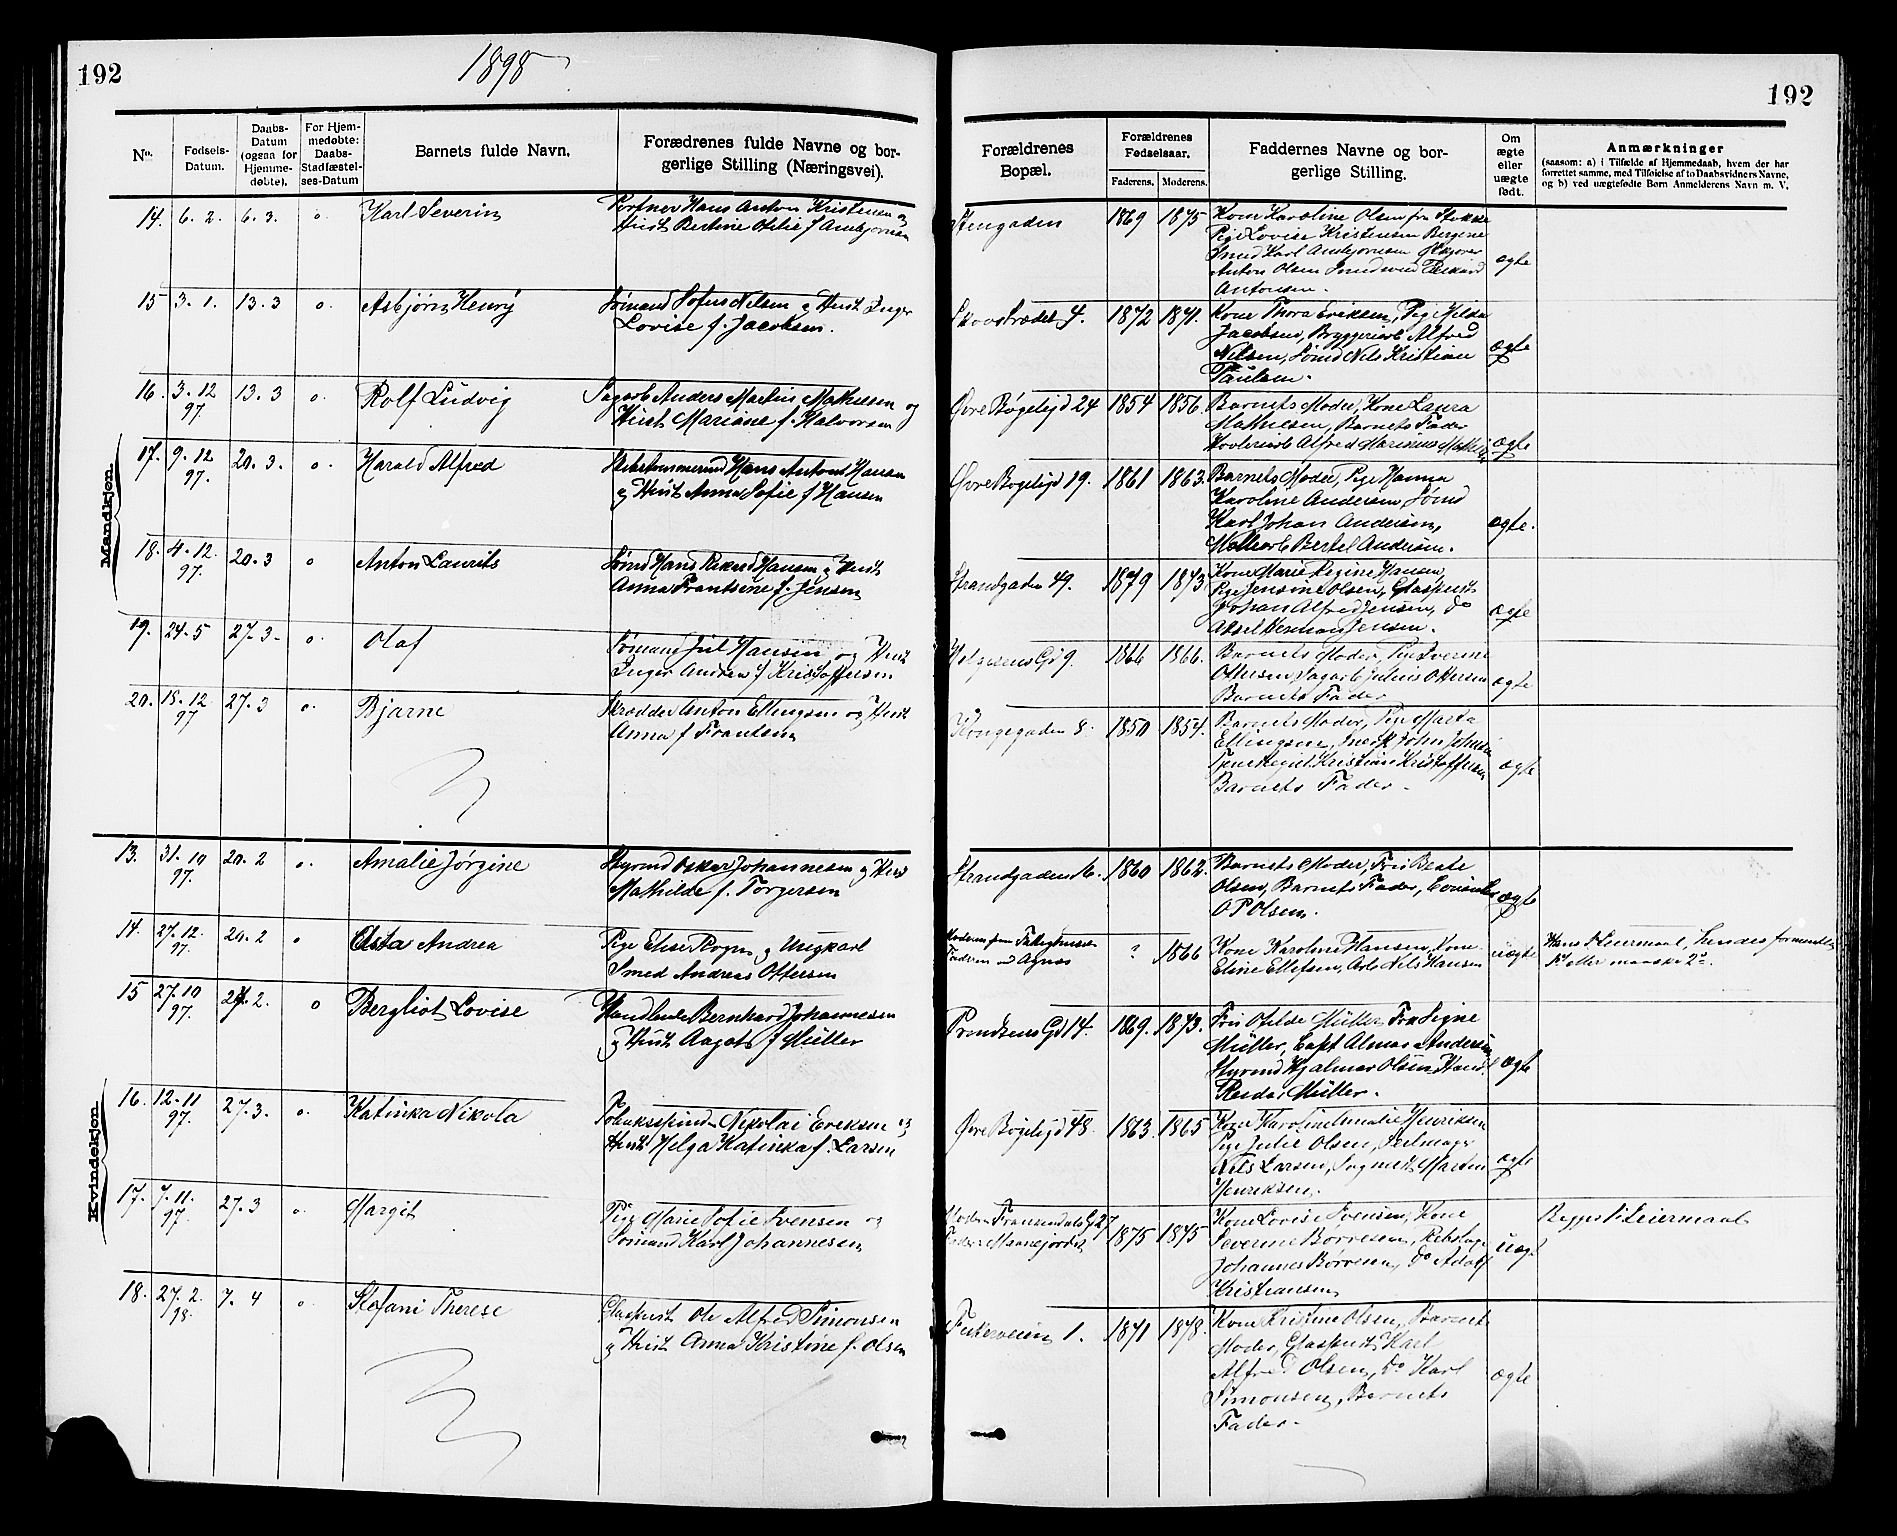 192
1898
192
No.
Fødsels-
Datum.
Daabs-
Datum
(ogsaa for
Hjemme-
døbte).
For Hjem-
medøbte:
Daabs-
Stadfæstel-
ses-Datum
Barnets fulde Navn.
Forædrenes fulde Navne og bor-
gerlige Stilling (Næringsvei).
Forældrenes
Bopæl.
Forældrenes
Fødselsaar.
Faderens.
Moderens.
Faddernes Navne og bor-
gerlige Stilling.
Om
ægte
eller
uægte
født.
Anmærkninger
(saasom: a) i Tilfælde af Hjemmedaab, hvem der har
forrettet samme, med Tilføielse af to Daabsvidners Navne,
og b) ved uægtefødte Børn Anmelderens Navn m. V.
Mandkjøn.
14. 6. 2. 6. 3. o Karl Severin
Portner Hans Anton Kristensen og
Hust Bertine Otilie f Ambjørnsen
Stengaden 1869 1875
Kone Karoline Olsen fra Stokke
Pige Lovise Kristensen Bergene
Smed Karl Ambjørnsen
Anton Olsen
Antonsen.
ægte
15 3. 1. 13. 3 o. Asbjørn Henry
Sømand Sofus Nilsen og Hust Inger
Lovise f. Jacobsen.
Skovstrædet 4. 1872 1871.
Kone Thora Eriksen, Pige Hilda
Jacobsen, Bryggeriarb Alfred
Nilsen, Sømd Nils Kristian
Paulsen.
ægte
16. 3. 12 97 13. 3 o. Rolf Ludvig
Sagarb Anders Martin Mathisen og
Hust Mariane f. Halvorsen
Øvre Bøgeligd 24 1854 1856.
Barnets Moder, Kone Laura
Mathiesen, Barnets Fader
Alfred Marinius
ægte
17. 9. 12 97. 20. 3. o. Harald Alfred
Hans Anton Hansen
og Hust Anna Sofie f Hansen
Øvre Bøgeligd 19. 1861 1863.
Barnets Moder, Pige Hanna
Karoline Andersen, Sømd
Karl Johan Andersen,
Bertel Andersen.
ægte.
18. 4. 12. 97. 20. 3 o Anton Laurits
Sømd Hans Hansen og Hust
Anna Frantsine f. Jensen
Strandgaden 49. 1879 1873
Kone Marie Regine Hansen,
Pige Jensine Olsen, Glaspust
Johan Alfred Jensen, do
Aksel Herman Jensen.
ægte
19. 24. 5 27. 3. o. Olaf
Sømand Jul Hansen og Hust
Inger Andrea f Kristoffersen
9. 1866 1866.
Barnets Moder, Pige
Ottersen, Sagarb Julius Ottersen
Barnets Fader
ægte
20. 18. 12 97 27. 3 o. Bjarne
Skrædder Anton Ellingsen og Hust
Anna f Frantsen
Kongegaden 8. 1850 1854.
Barnets Moder, Pige Marta
Ellingsen, John
Kristine Kristoffersen
Barnets Fader.
ægte
Kvindekjøn.
13. 31. 10 97. 20. 2 o. Amalie Jørgine
Styrmd Oskar Johannesen og Hust
Mathilde f. Torgersen
Strandgaden 1860 1862.
Barnets Moder, Frk Beate
Olsen, Barnets Fader,
O P Olsen.
ægte
14. 27. 12. 97. 20. 2 o Asta Andrea
Pige Elise og Ungkarl
Smed Andreas Ottersen
Moderen fra
Faderen ved Agnes
? 1866
Kone Karoline Hansen, Kone
Eline Ellefsen, Arb Nils Hansen
uægte
Hans 1ste Leiermaal, hendes formentlig
1ste eller maaske 2det.
15 27. 10 97. 2. o Bergliot Lovise
Handlende Bernhard Johannesen
og Hust Aagot f Müller
Prondsens Gd 14. 1869. 1873.
Frk Ofilde Müller, Frk Signe
Müller, Capt Almar Andersen
Styrmd Hjalmar Olsen, Handl
Reidar Müller.
ægte
16. 12. 11 97. 27. 3. o. Katinka Nikola
Tobaksspinder Nikolai Eriksen og
Hust Helga Katinka f. Larsen
Øvre Bøgeligd 48. 1863. 1865
Kone Karoline Amalie Henriksen
Pige Julie Olsen, Seilmager
Nils Larsen, Martin
Henriksen.
ægte
17. 7. 11. 97. 27. 3 o. Margit
Pige Marie Sofie Svensen og
Sømand Karl Johannesen
27
1875 1875
Kone Lovise Svensen, Kone
Severine Børresen,
Johannes Børresen, do Adolf
Kristiansen
uægt
Begges 1ste Leiermaal
18. 27. 2. 98. 7. 4 o. Stefani Therese
Glaspust Ole Alfred Simonsen
og Hust Anna Kristine f. Olsen
1. 1871 1878.
Kone Kristine Olsen, Barnets
Moder, Glaspust Karl
Alfred Olsen, do Karl
Simonsen, Barnets
Fader.
ægte